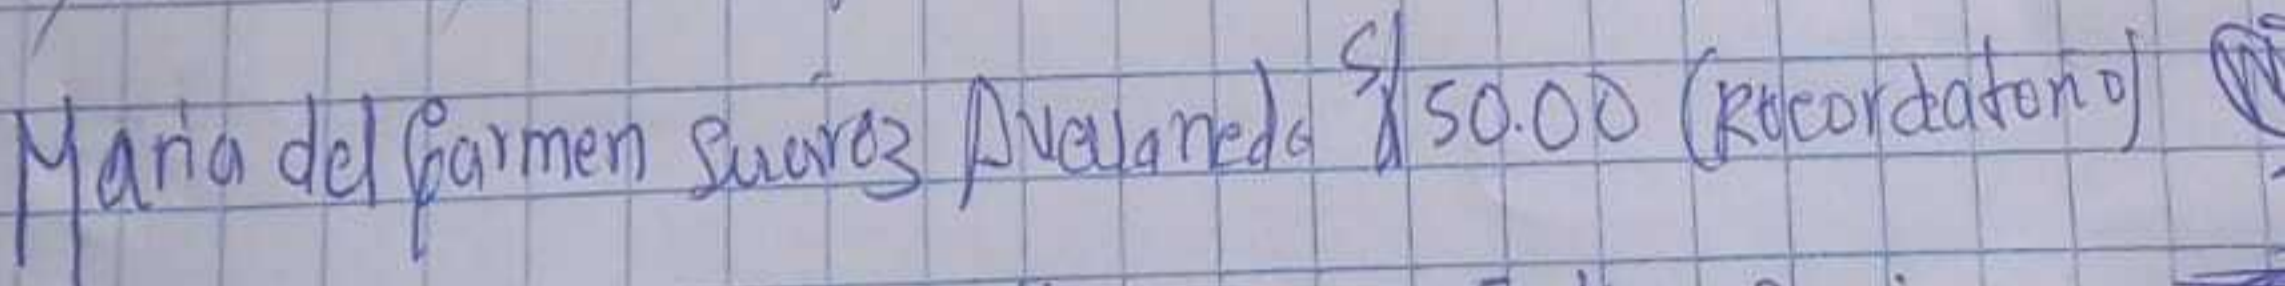 Maria del Carmen Suárez Avellaneda S/ 50.00 (Recordatorio)